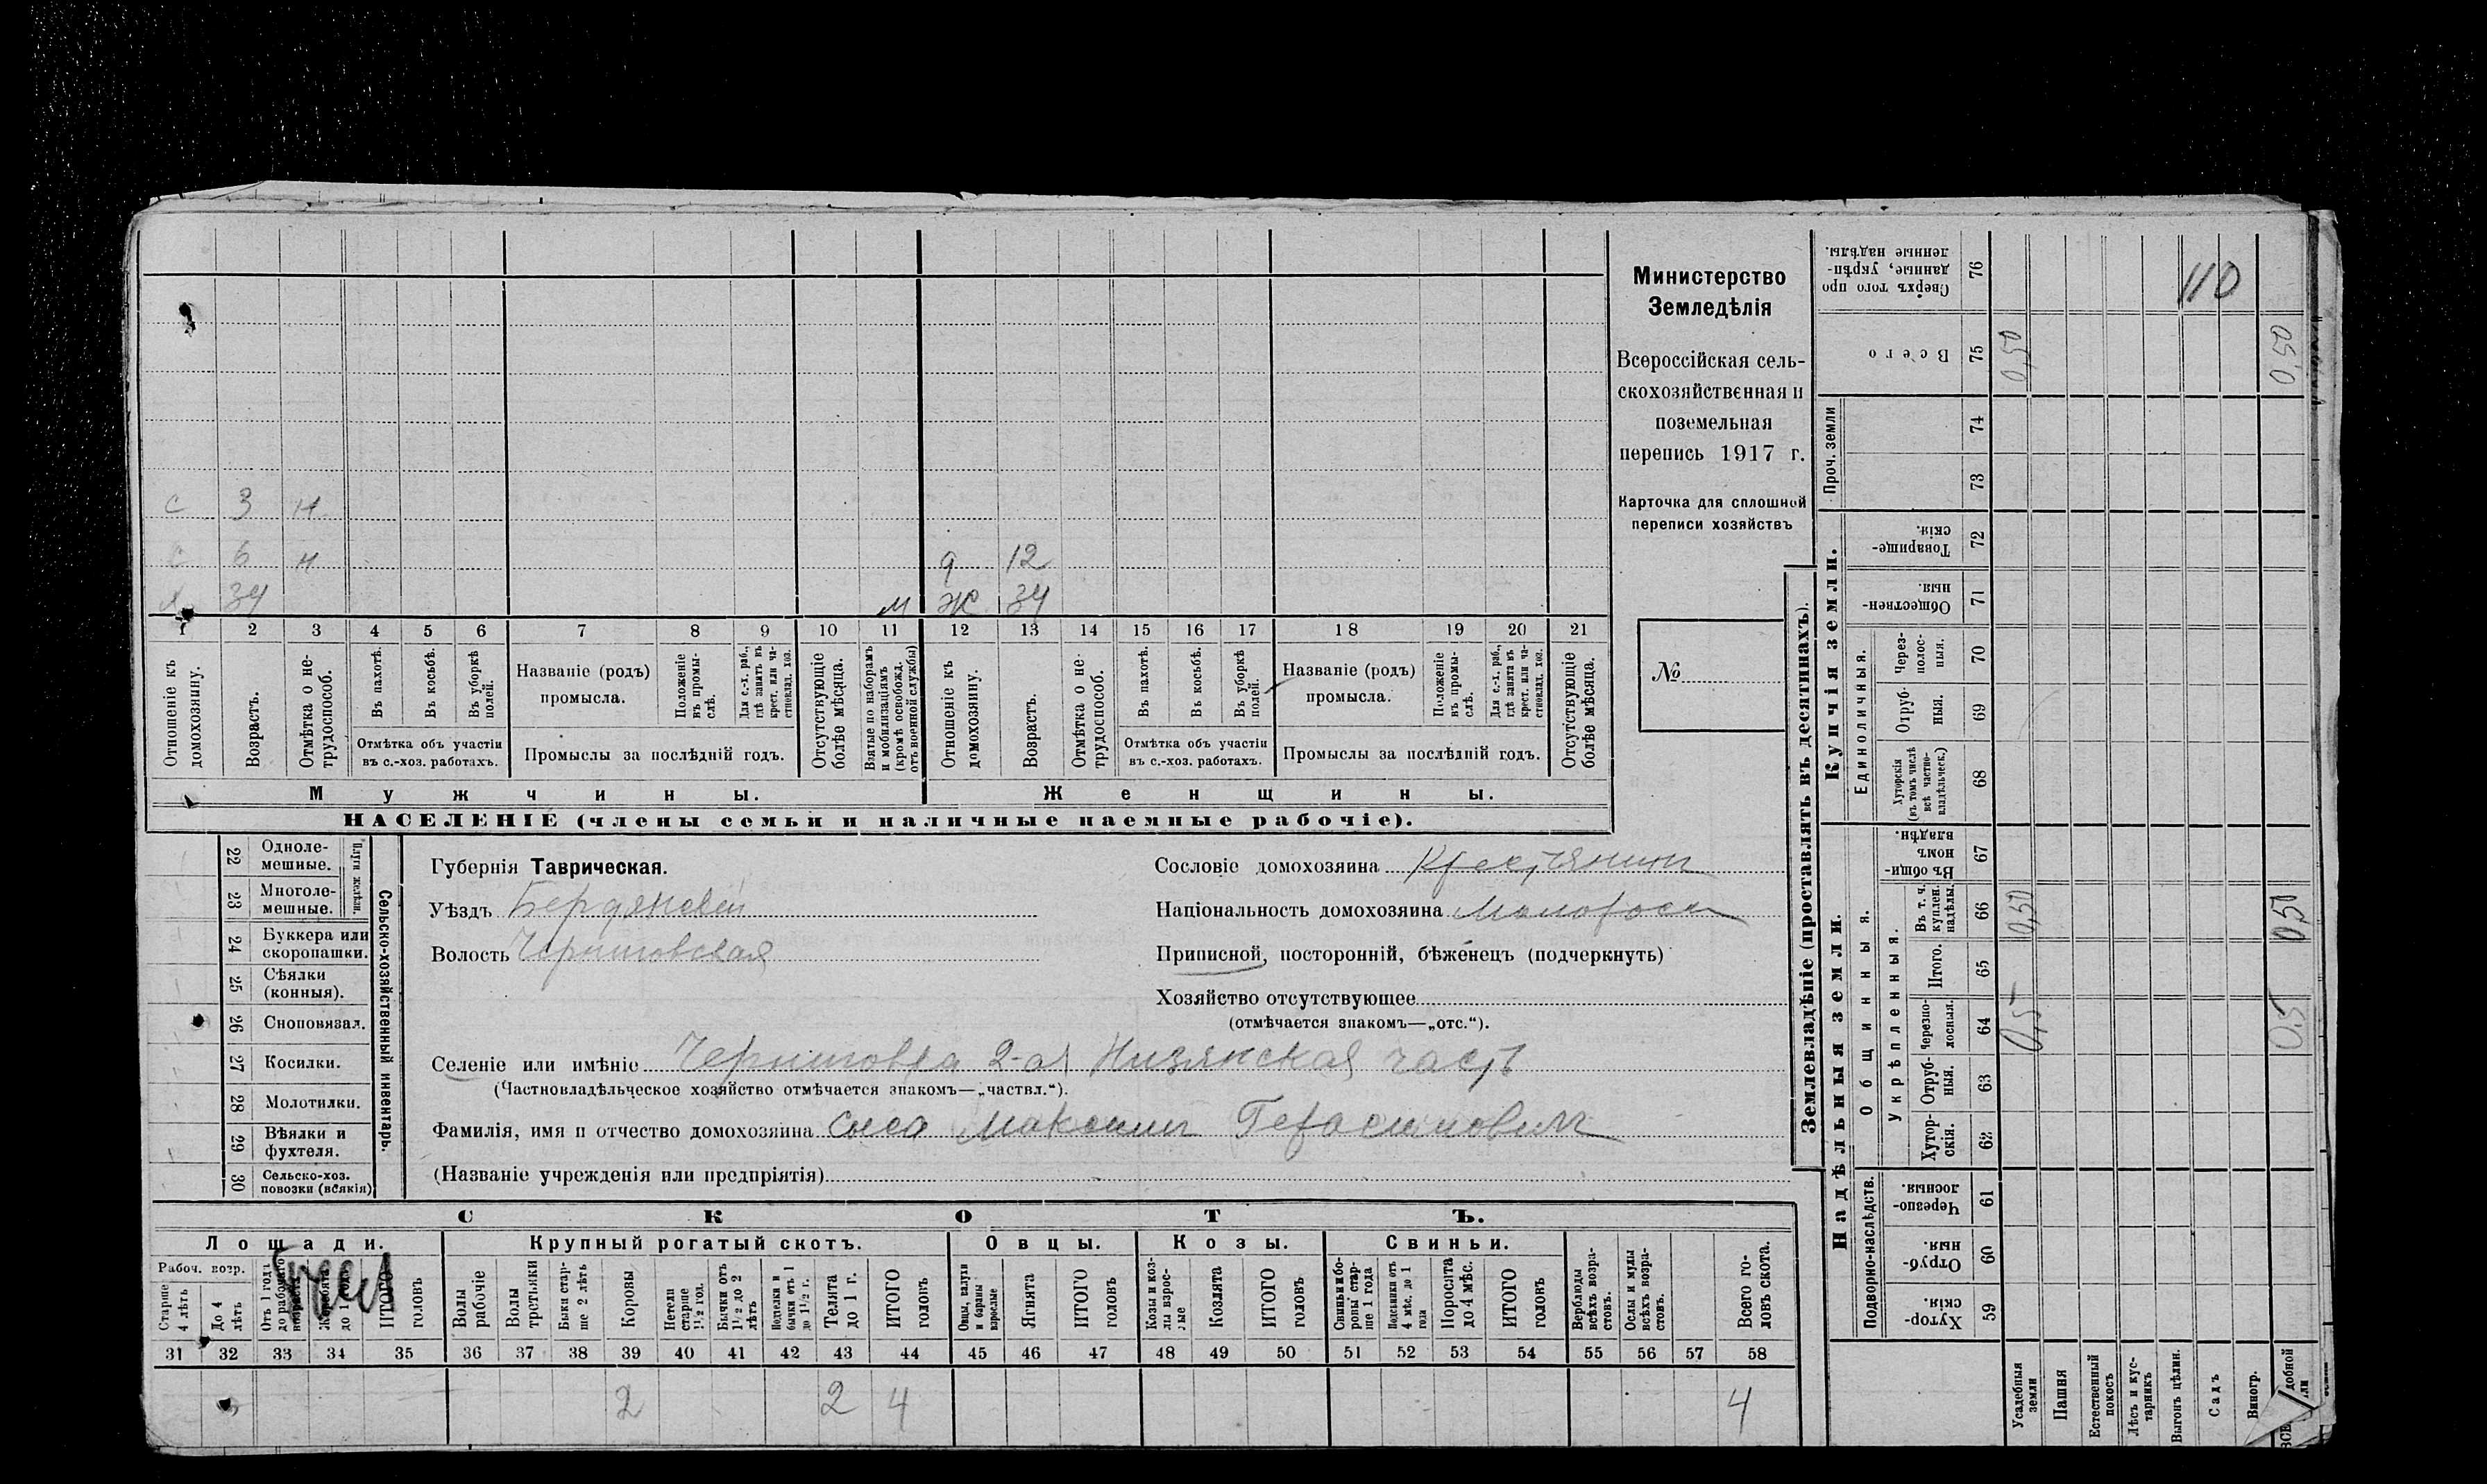 Министерство
Земледѣлія
Всероссійская сель-
скохозяйственная и
поземельная
перепись 1917 г.
Карточка для сплошной
переписи хозяйствъ
№
с 3 н
с 6 н
д 12
34
м Ж 34
1 2 3 4 5 6 7 8 9 10 11 12 13 14 15 16 17 18 19 20 21
Отношеніе къ домохозяину.
Возрастъ.
Отмѣтка о не-трудоспособ.
Въ пахотѣ.
Въ косьбѣ.
Въ уборкѣ полей.
Отмѣтка объ участіи
въ с.-хоз. работахъ.
Названіе (родъ)
промысла.
Положеніе въ промы-слѣ.
Для с.-х. раб., гдѣ занятъ въ крест. или ча-стновлад. хоз.
Промыслы за послѣдній годъ.
Отсутствующіе болѣе мѣсяца.
Взятые по наборамъ и мобилизаціямъ (кромѣ освобожд. отъ военной службы)
Отношеніе къ домохозяину.
Возрастъ.
Отмѣтка о не-трудоспособ.
Въ пахотѣ.
Въ косьбѣ.
Въ уборкѣ полей.
Отмѣтка объ участіи
въ с.-хоз. работахъ.
Названіе (родъ)
промысла.
Положеніе въ промы-слѣ.
Для с.-х. раб., гдѣ занята въ крест. или ча-стновлад. хоз.
Промыслы за послѣдній годъ.
Отсутствующіе болѣе мѣсяца.
Мужчины.
Женщины.
НАСЕЛЕНІЕ (члены семьи и наличные наемные рабочіе).
Сельско-хозяйственный инвентарь.
Плуги желѣзн.
22 Одноле-мешные.
23 Многоле-мешные.
24 Буккера или скоропашки.
25 Сѣялки (конныя).
26 Сноповязал.
27 Косилки.
28 Молотилки.
29 Вѣялки и фухтеля.
30 Сельско-хоз. повозки (всякія)
Губернія Таврическая.
Уѣздъ Бердянскій
Волость Черниговская
Сословіе домохозяина Крестьянин
Національность домохозяина Малоросс
Приписной, посторонній, бѣженецъ (подчеркнуть)
Хозяйство отсутствующее
(отмѣчается знакомъ—„отс.“).
Селеніе или имѣніе Черниговка 2-ая Низянская часть
(Частновладѣльческое хозяйство отмѣчается знакомъ—„частвл.“).
Фамилія, имя и отчество домохозяина Сыса Максим Герасимович
(Названіе учрежденія или предпріятія)
СКОТЪ.
Лошади.
Крупный рогатый скотъ.
Овцы.
Козы.
Свиньи.
Рабоч. возр.
Старше 4 лѣтъ
До 4 лѣтъ
Отъ 1 года до рабочаго возраста
Жеребята до 1 года
ИТОГО головъ
Волы рабочіе
Волы третьяки
Быки стар-ше 2 лѣтъ
Коровы
Нетели старше 1½ год.
Бычки отъ 1½ до 2 лѣтъ
Телки и бычки отъ 1 до 1½ г.
Телята до 1 г.
ИТОГО головъ
Овцы, валухи и бараны взрослые
Ягнята
ИТОГО головъ
Козы и коз-лы взрос-лые
Козлята
ИТОГО головъ
Свиньи и бо-ровы стар-ше 1 года
Подсвинки отъ 4 мѣс. до 1 года
Поросята до 4 мѣс.
ИТОГО головъ
Верблюды всѣхъ возра-стовъ.
Ослы и мулы всѣхъ возра-стовъ.
Всего го-ловъ скота.
31 32 33 34 35 36 37 38 39 40 41 42 43 44 45 46 47 48 49 50 51 52 53 54 55 56 57 58
2 2 4 4
Землевладѣніе (проставлять въ десятинахъ).
Купчія земли.
Надѣльныя земли.
Проч. земли
Единоличныя.
Общинныя.
Укрѣпленныя.
Подворно-наслѣдств.
Сверхъ того про-данные, укрѣп-ленные надѣлы. 76
110
Всего 75 0,50 0,50
74
73
Товарище-скія. 72
Обществен-ныя. 71
Через-полос-ныя. 70
Отруб-ныя. 69
Хуторскія (въ томъ числѣ всѣ частно-владѣльческ.) 68
Въ общи-номъ владѣн. 67
Въ т. ч. куплен. надѣлы. 66 0,50 0,50
Итого. 65
Черезпо-лосныя. 64 0,5 0,5
Отруб-ныя. 63
Хутор-скія. 62
Черезпо-лосныя. 61
Отруб-ныя. 60
Хутор-скія. 59
Усадебныя земли
Пашня
Естественный покосъ
Лѣсъ и кус-тарникъ
Выгонъ цѣлин.
Садъ
Виногр.